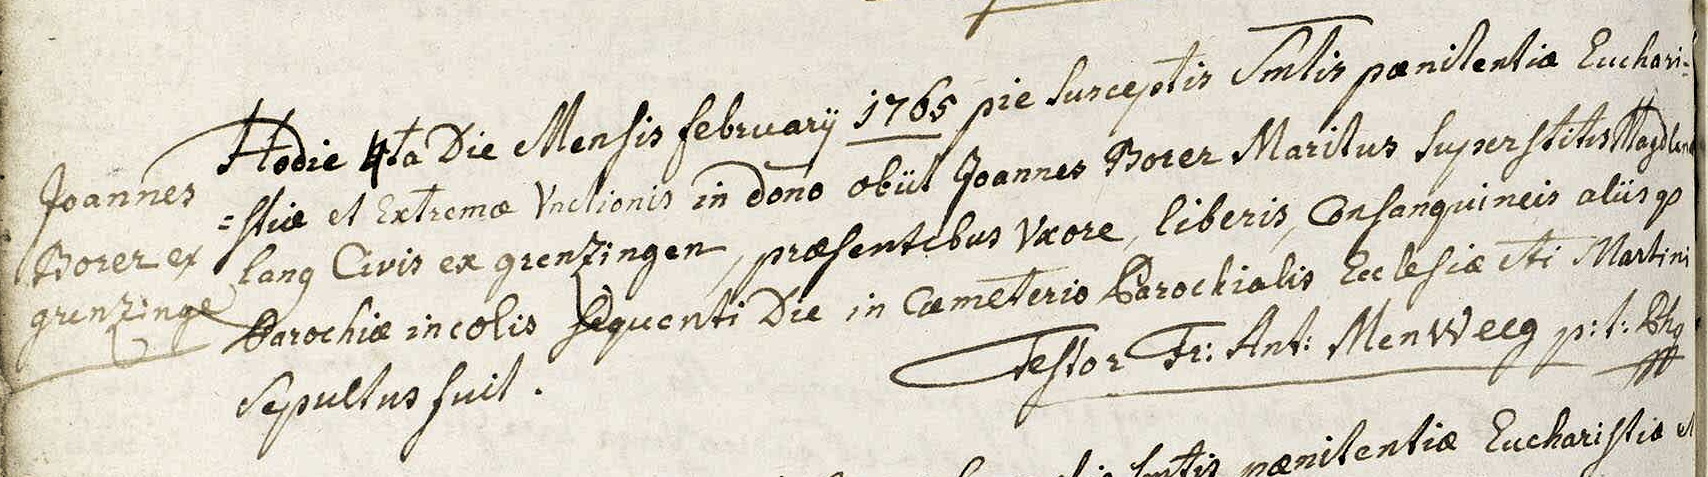 Hodie 4ta Die Mensis februarij 1765 pie Susceptis Smtis pœnitentiæ Euchari-
Joannes
=stiæ et Extremæ Vnctionis in dono obiit Joannes Borer Maritus Superstitis Magdlen
Borer ex
lang Civis ex grenzingen, præsentibus Vxore, liberis, Consanguineis aliisq
grenzinge
Parochiæ incolis Sequenti Die in Cæmeterio Parochialis Ecclesiæ Sti Martini
Sepultus fuit.
Testor Fr: Ant: Menweeg p: t: Phg
Smtis pœnitentiæ Eucharistiæ et